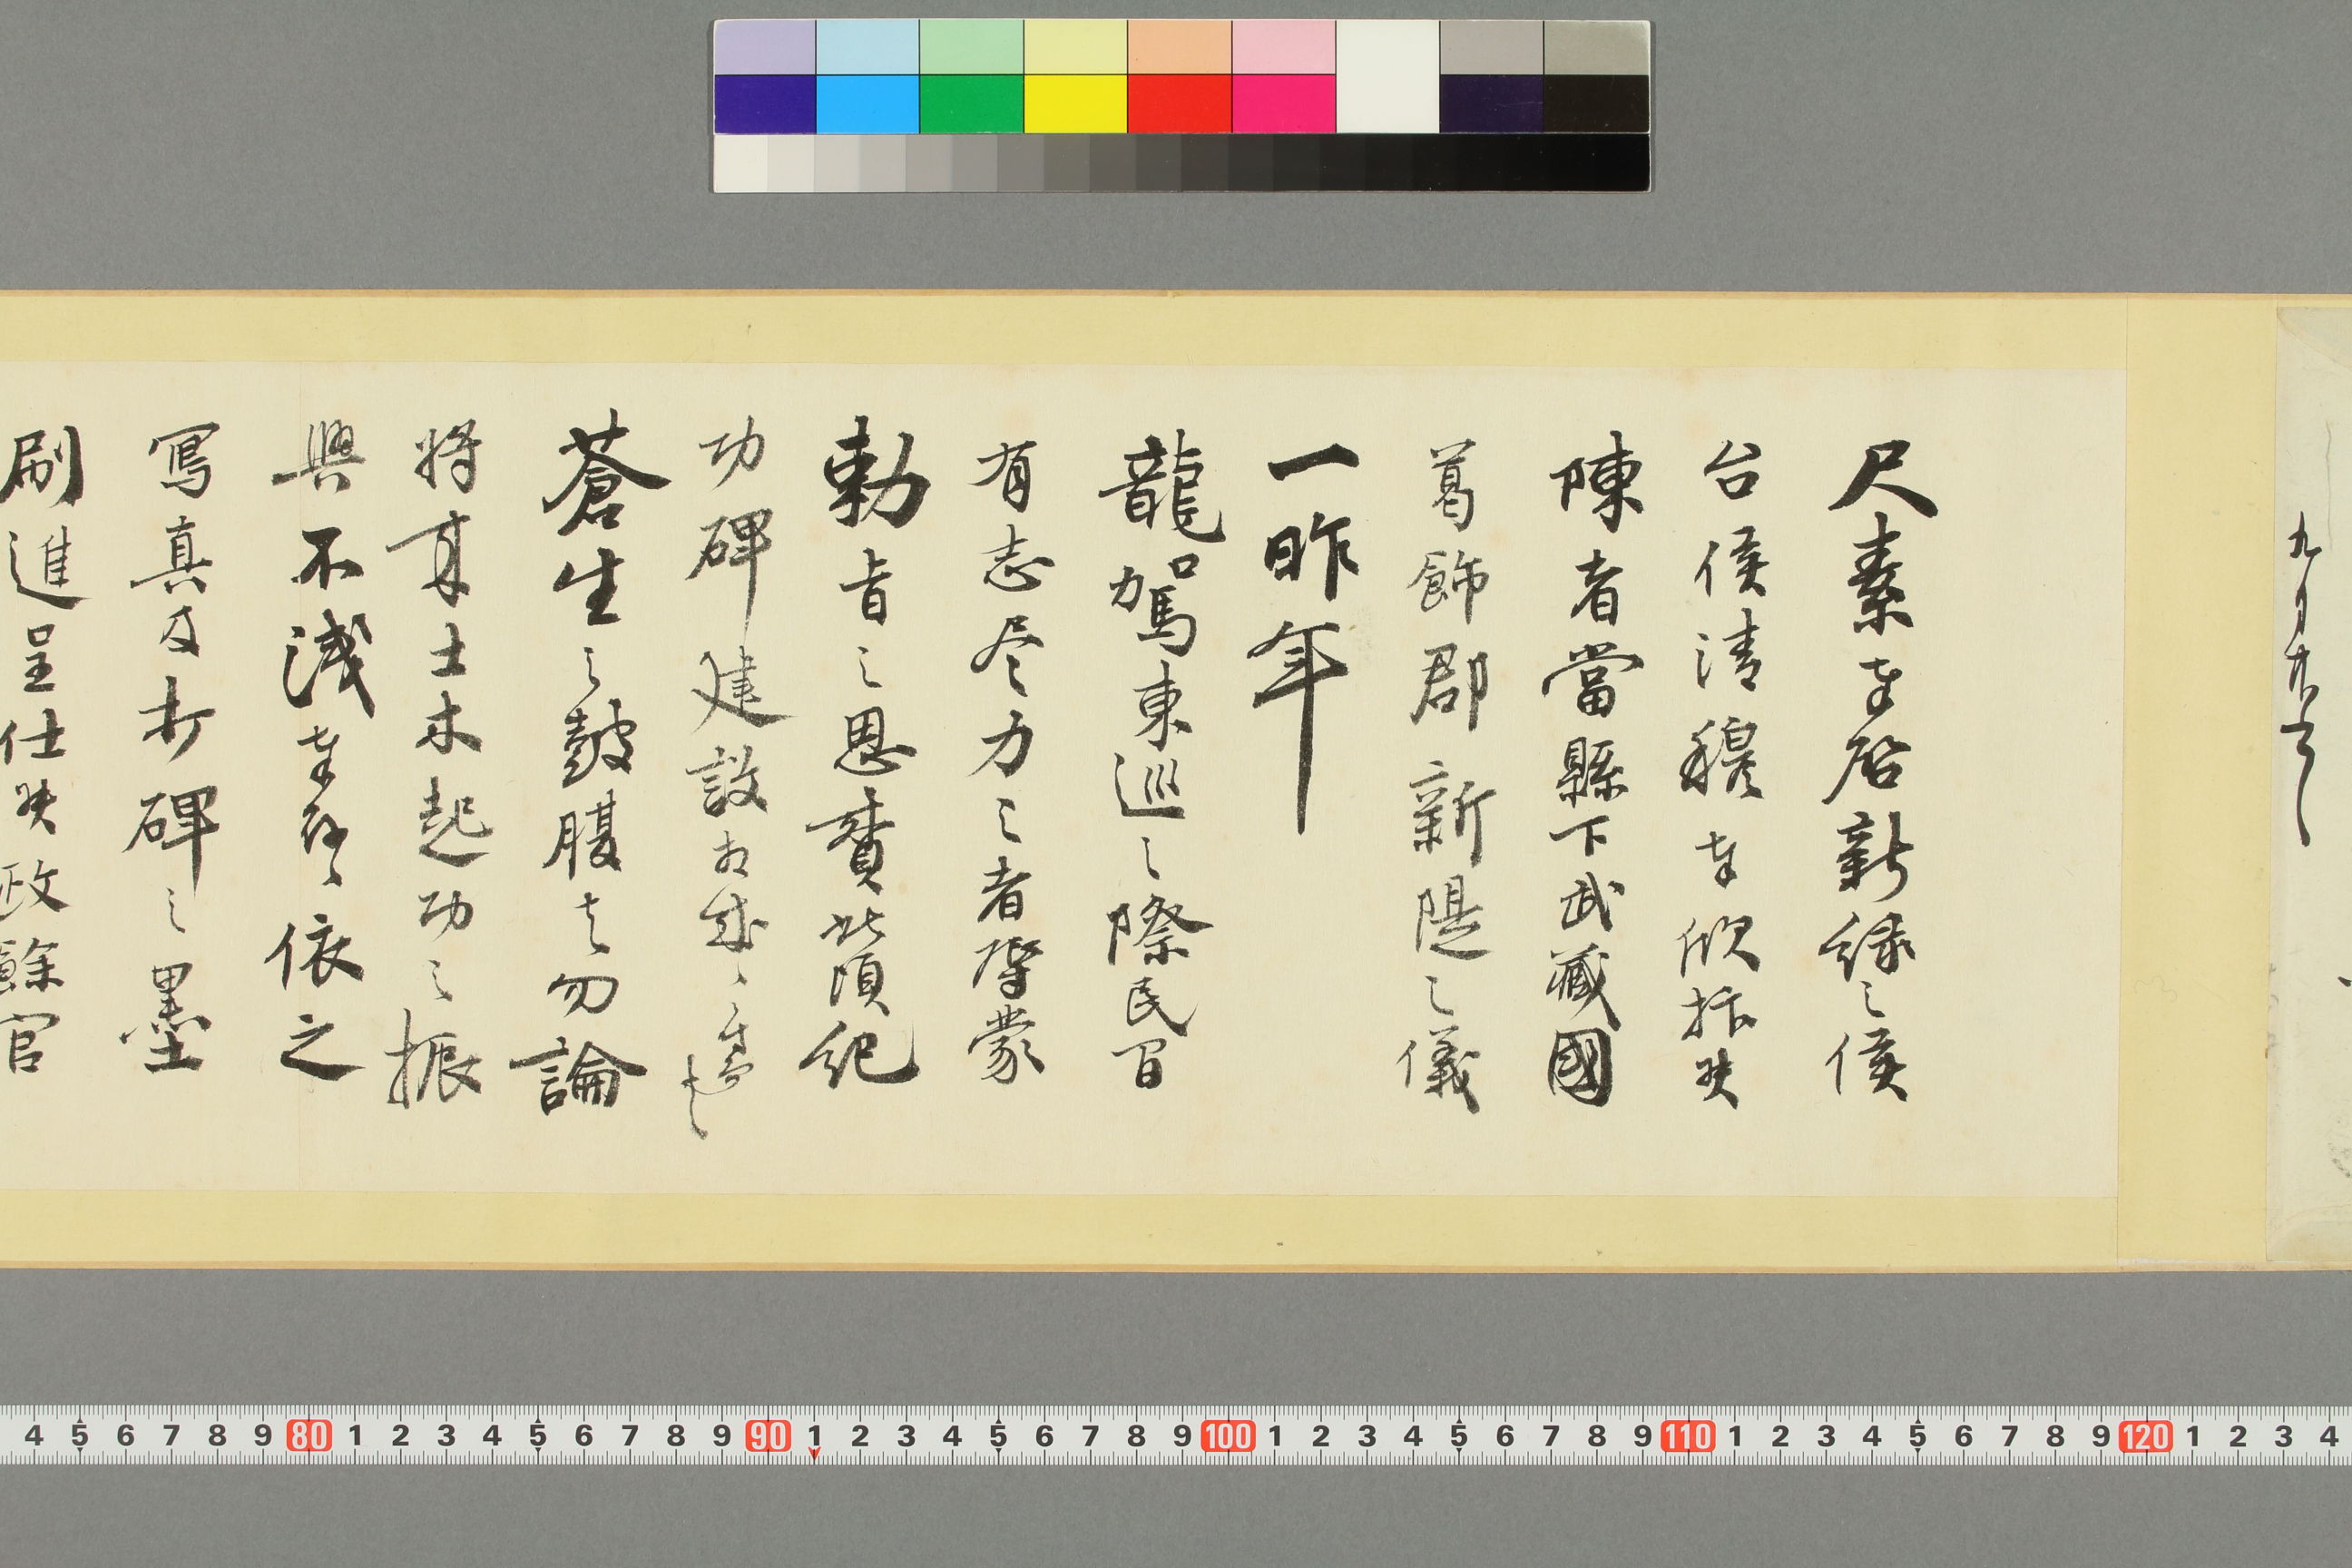 九月
尺素奉啓新緑之候
台候清穆奉欣抃候
陳者當縣下武藏國
葛飾郡新隄之儀
一昨年
龍駕東巡之際民習
有志尽力之者辱蒙
勅旨之恩賚此頃紀
功碑建設相成
蒼生之鼓腹者勿論
将来土木起功之振
興不浅奉存候依之
寫真及打碑之墨
刷進呈仕候政餘官
4 5 6 7 8 9 80 1 2 3 4 5 6 7 8 9 90 1 2 3 4 5 6 7 8 9 100 1 2 3 4 5 6 7 8 9 110 1 2 3 4 5 6 7 8 9 120 1 2 3 4